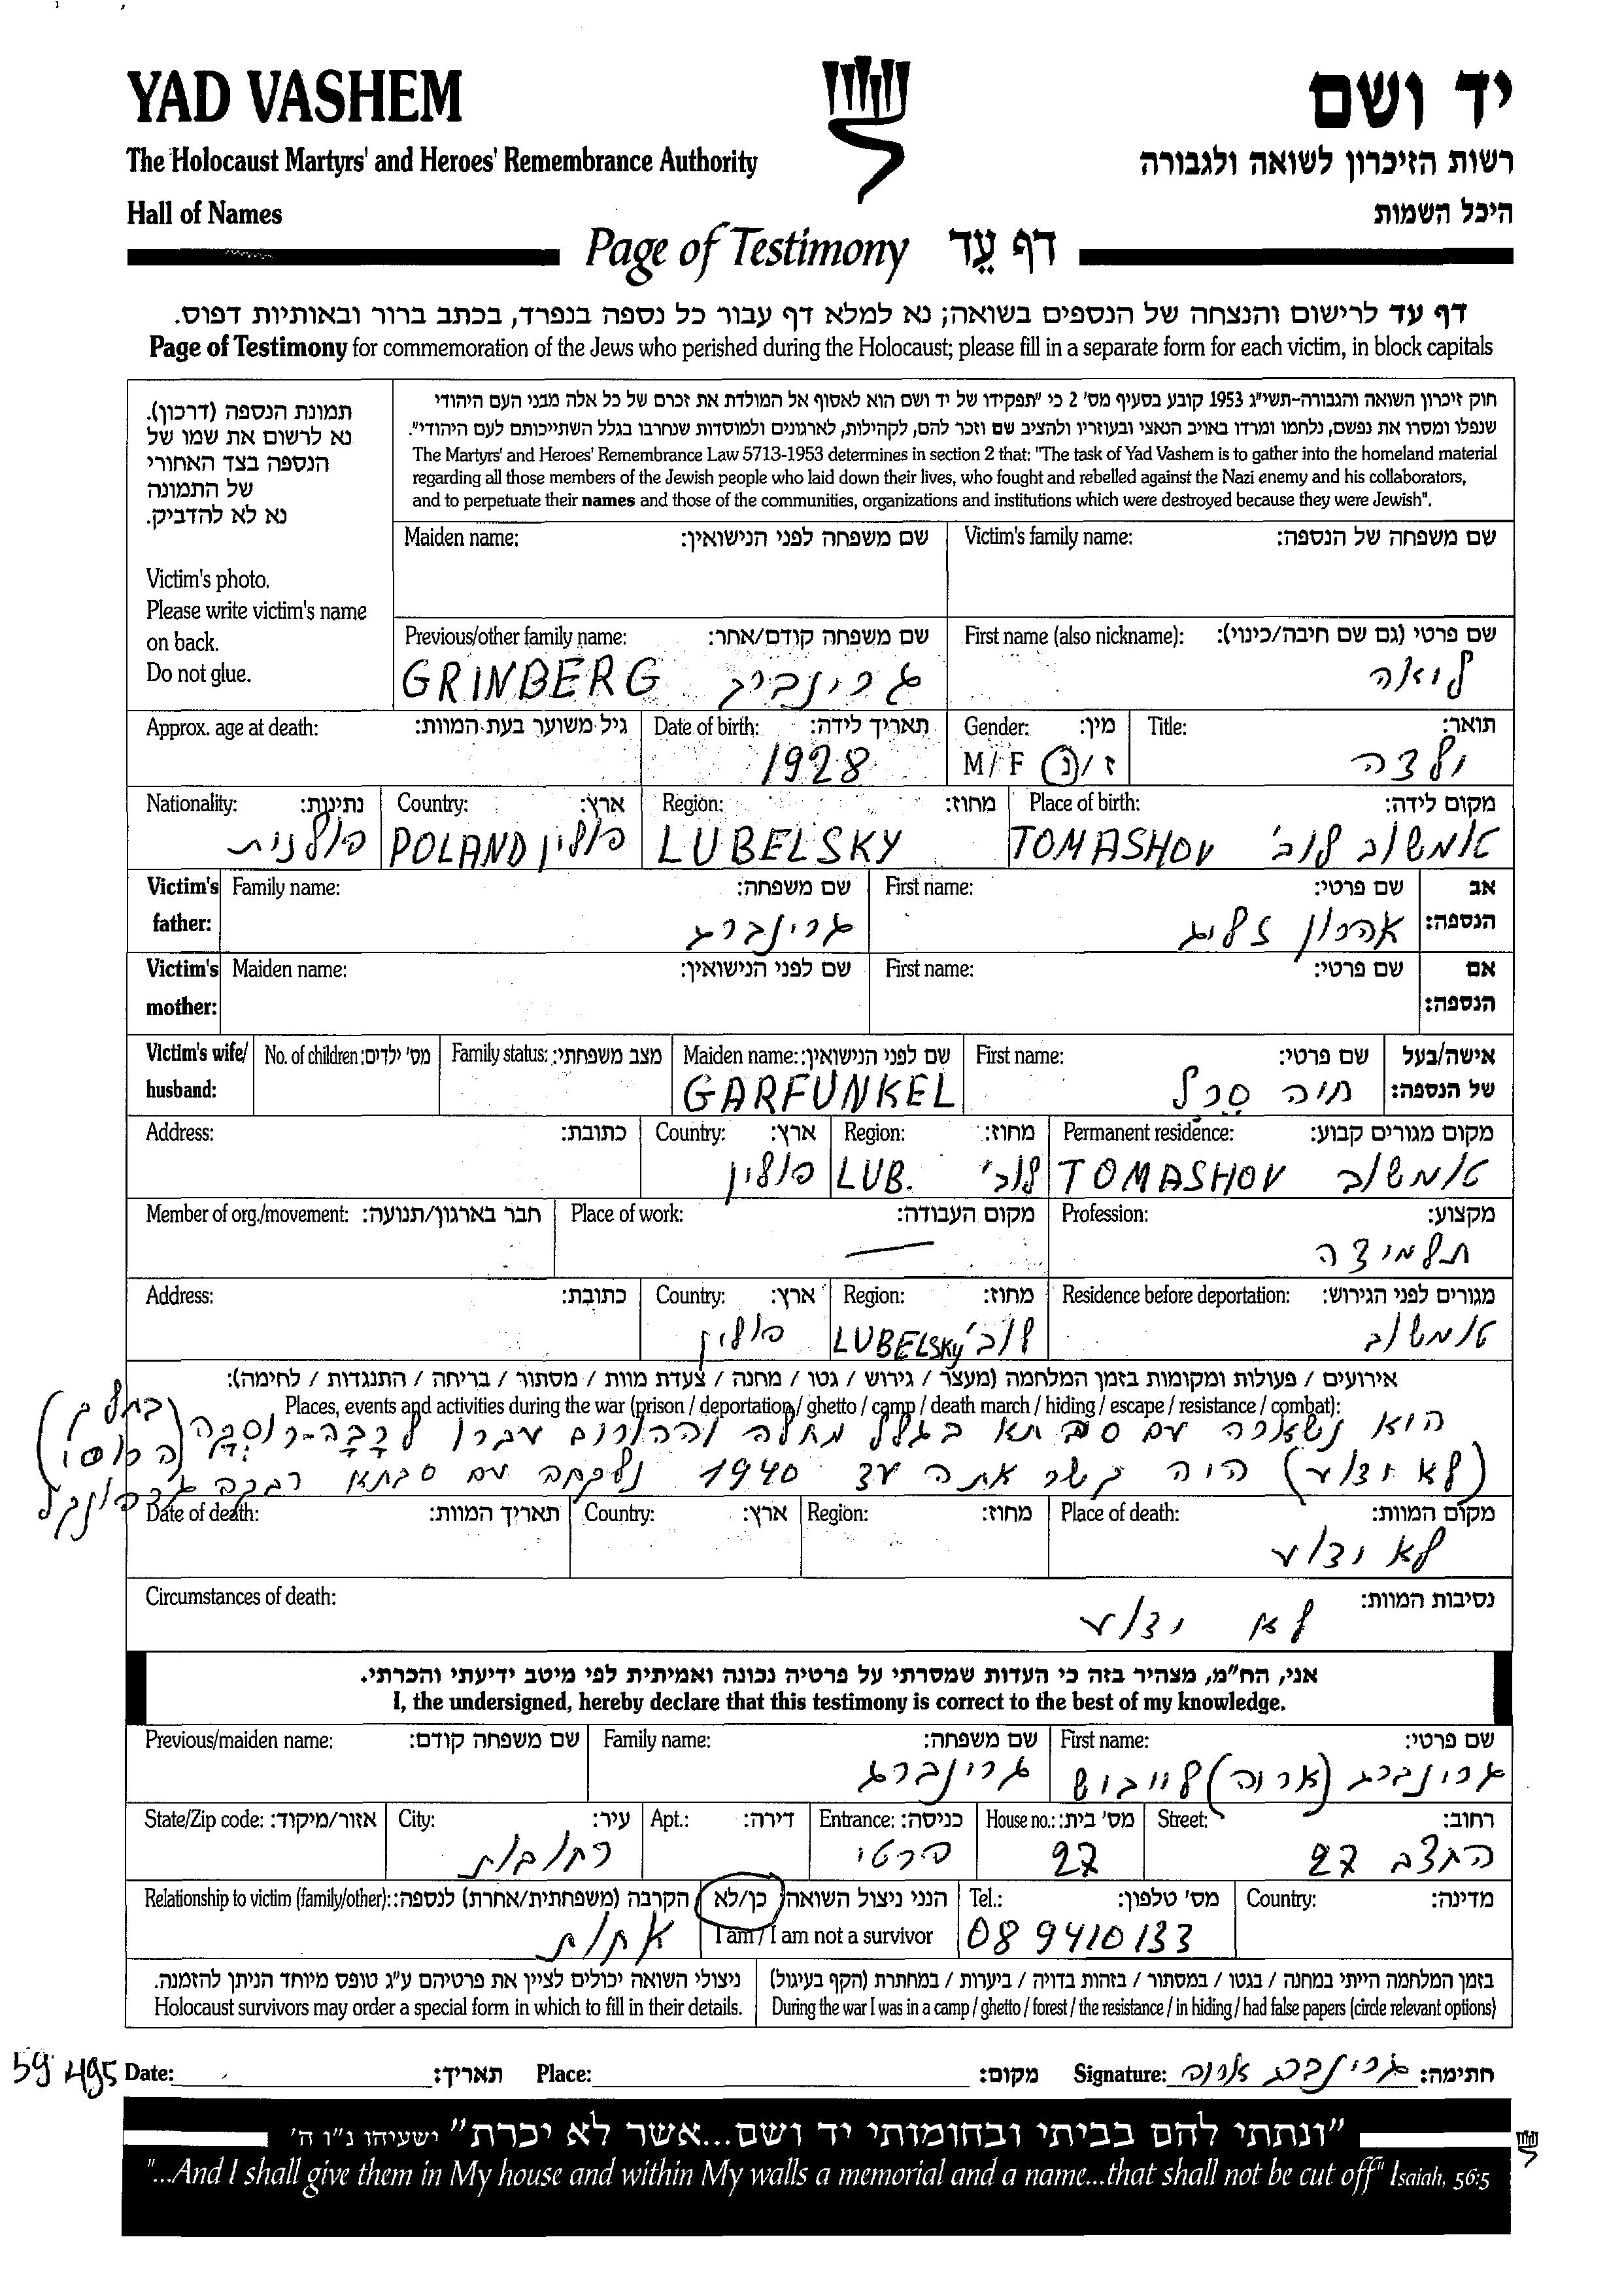 YAD VASHEM
יד ושם
The Holocaust Martyrs' and Heroes' Remembrance Authority
רשות הזיכרון לשואה ולגבורה
Hall of Names
היכל השמות
Page of Testimony דף עֵד
דף עד לרישום והנצחה של הנספים בשואה; נא למלא דף עבור כל נספה בנפרד, בכתב ברור ובאותיות דפוס.
Page of Testimony for commemoration of the Jews who perished during the Holocaust; please fill in a separate form for each victim, in block capitals
תמונת הנספה (דרכון).
נא לרשום את שמו של
הנספה בצד האחורי
של התמונה
נא לא להדביק.
Victim's photo.
Please write victim's name
on back.
Do not glue.
חוק זיכרון השואה והגבורה-תשי"ג 1953 קובע בסעיף מס' 2 כי "תפקידו של יד ושם הוא לאסוף אל המולדת את זכרם של כל אלה מבני העם היהודי
שנפלו ומסרו את נפשם, נלחמו ומרדו באויב הנאצי ובעוזריו ולהציב שם וזכר להם, לקהילות, לארגונים ולמוסדות שנחרבו בגלל השתייכותם לעם היהודי".
The Martyrs' and Heroes' Remembrance Law 5713-1953 determines in section 2 that: "The task of Yad Vashem is to gather into the homeland material
regarding all those members of the Jewish people who laid down their lives, who fought and rebelled against the Nazi enemy and his collaborators,
and to perpetuate their names and those of the communities, organizations and institutions which were destroyed because they were Jewish".
Maiden name: שם משפחה לפני הנישואין: Victim's family name: שם משפחה של הנספה:
Previous/other family name: שם משפחה קודם/אחר: First name (also nickname): שם פרטי (גם שם חיבה/כינוי):
GRINBERG גרינברג לואה
Approx. age at death: גיל משוער בעת המוות: Date of birth: תאריך לידה: Gender: מין: Title: תואר:
1928 M/F ז/נ ילדה
Nationality: נתינות: Country: ארץ: Region: מחוז: Place of birth: מקום לידה:
פולנית POLAND פולין LUBELSKY TOMASHOV טומשוב לוב'
Victim's father: Family name: שם משפחה: First name: שם פרטי: אב הנספה:
גרינברג אהרון זליג
Victim's mother: Maiden name: שם לפני הנישואין: First name: שם פרטי: אם הנספה:
Victim's wife/ husband: No. of children: מס' ילדים: Family status: מצב משפחתי: Maiden name: שם לפני הנישואין: First name: שם פרטי: אישה/בעל של הנספה:
GARFUNKEL חיה סרל
Address: כתובת: Country: ארץ: Region: מחוז: Permanent residence: מקום מגורים קבוע:
פולין LUB. לוב' TOMASHOV טומשוב
Member of org./movement: חבר בארגון/תנועה: Place of work: מקום העבודה: Profession: מקצוע:
תלמידה
Address: כתובת: Country: ארץ: Region: מחוז: Residence before deportation: מגורים לפני הגירוש:
פולין LUBELSKY לוב' טומשוב
אירועים / פעולות ומקומות בזמן המלחמה (מעצר / גירוש / גטו / מחנה / צעדת מוות / מסתור / בריחה / התנגדות / לחימה):
Places, events and activities during the war (prison / deportation / ghetto / camp / death march / hiding / escape / resistance / combat):
היא נשארה עם סבתא בגלל מחלה וההורים עברו לרָבָה-רוּסְקָה (בחלק הרוסי)
(לא ידוע) היה קשר אתה עד 1940 נלקחה עם סבתא רבקה גרפונקל
Date of death: תאריך המוות: Country: ארץ: Region: מחוז: Place of death: מקום המוות:
לא ידוע
Circumstances of death: נסיבות המוות:
לא ידוע
אני, הח"מ, מצהיר בזה כי העדות שמסרתי על פרטיה נכונה ואמיתית לפי מיטב ידיעתי והכרתי.
I, the undersigned, hereby declare that this testimony is correct to the best of my knowledge.
Previous/maiden name: שם משפחה קודם: Family name: שם משפחה: First name: שם פרטי:
גרינברג גרינברג (אריה) לייבוש
State/Zip code: אזור/מיקוד: City: עיר: Apt.: דירה: Entrance: כניסה: House no.: מס' בית: Street: רחוב:
רחובות פרטי 27 החצב 27
Relationship to victim (family/other): הקרבה (משפחתית/אחרת) לנספה: הנני ניצול השואה כן/לא Tel.: מס' טלפון: Country: מדינה:
אחות I am / I am not a survivor 08 9410133
ניצולי השואה יכולים לציין את פרטיהם ע"ג טופס מיוחד הניתן להזמנה. בזמן המלחמה הייתי במחנה / בגטו / במסתור / בזהות בדויה / ביערות / במחתרת (הקף בעיגול)
Holocaust survivors may order a special form in which to fill in their details. During the war I was in a camp / ghetto / forest / the resistance / in hiding / had false papers (circle relevant options)
59 495 Date: תאריך: Place: מקום: Signature: גרינברג אריה חתימה:
"ונתתי להם בביתי ובחומותי יד ושם...אשר לא יכרת" ישעיהו נ"ו ה'
"...And I shall give them in My house and within My walls a memorial and a name...that shall not be cut off" Isaiah, 56:5